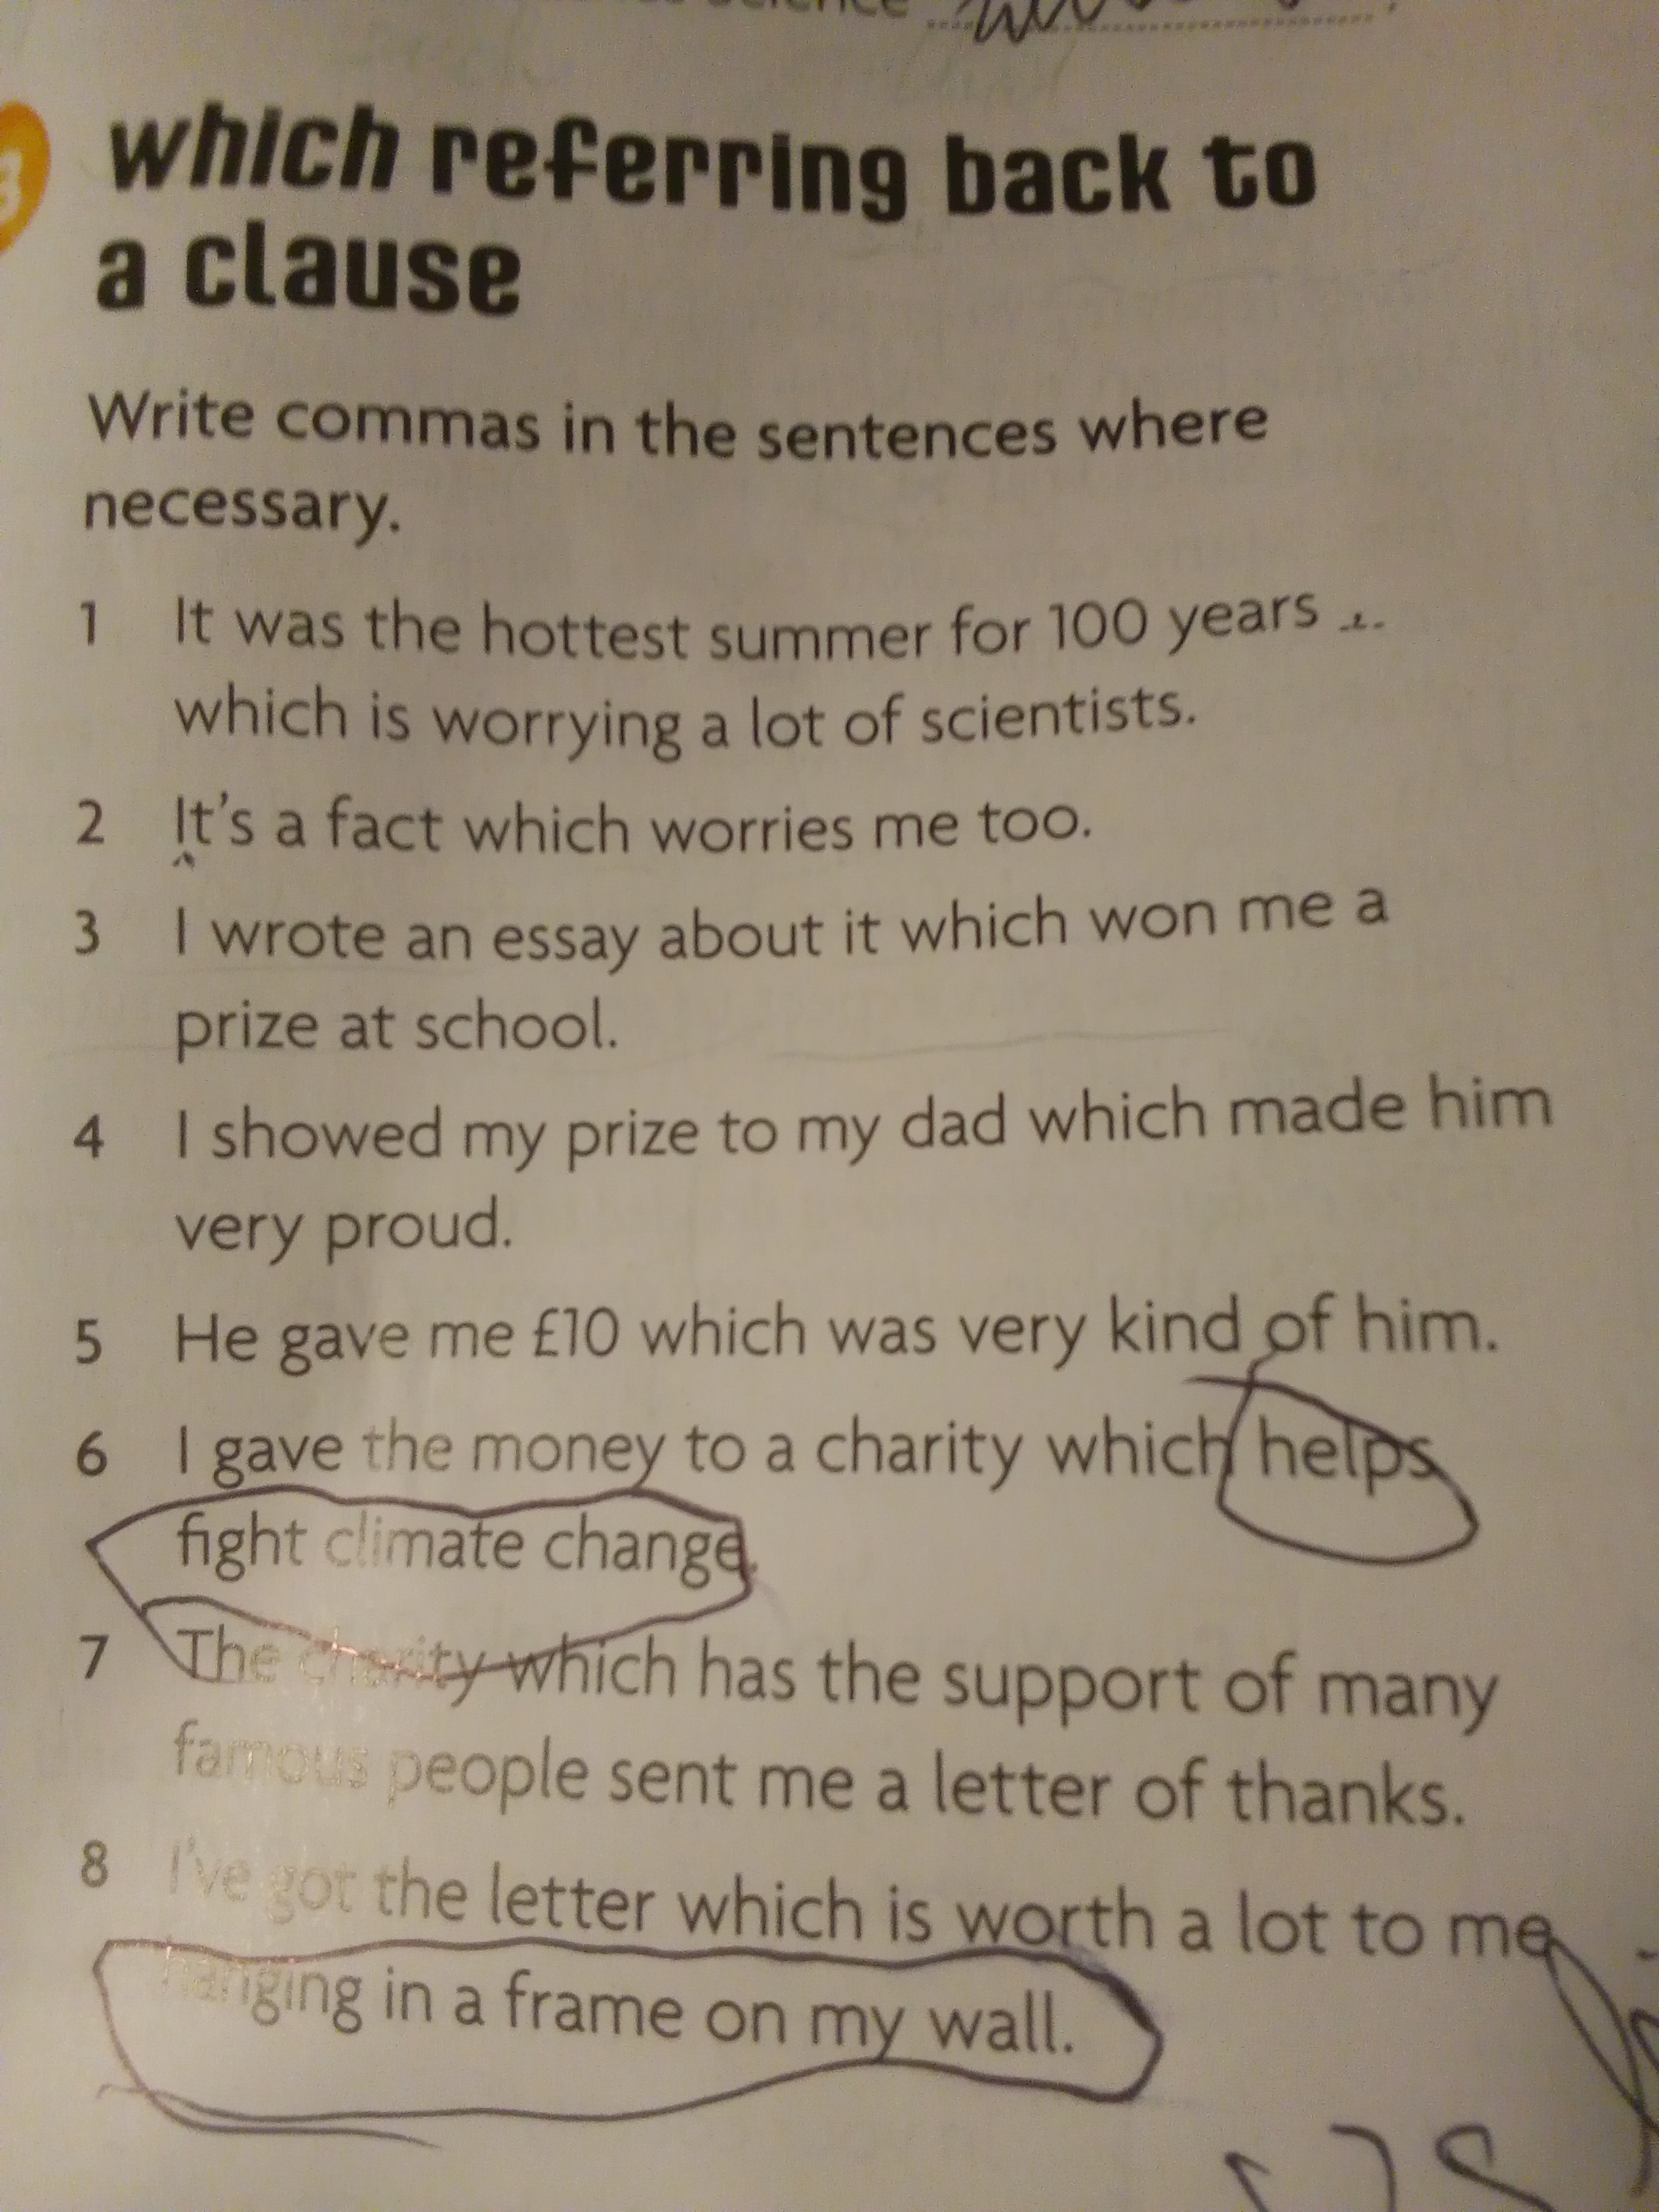 which referring back to
a clause
Write commas in the sentences where
necessary.
1 It was the hottest summer for 100 years
which is worrying a lot of scientists.
2 It's a fact which worries me too.
3 I wrote an essay about it which won me a
prize at school.
4 I showed my prize to my dad which made him
very proud.
5 He gave me £10 which was very kind of him.
6 I gave the money to a charity which helps
fight climate change.
7 The charity which has the support of many
famous people sent me a letter of thanks.
8 I've got the letter which is worth a lot to me
hanging in a frame on my wall.